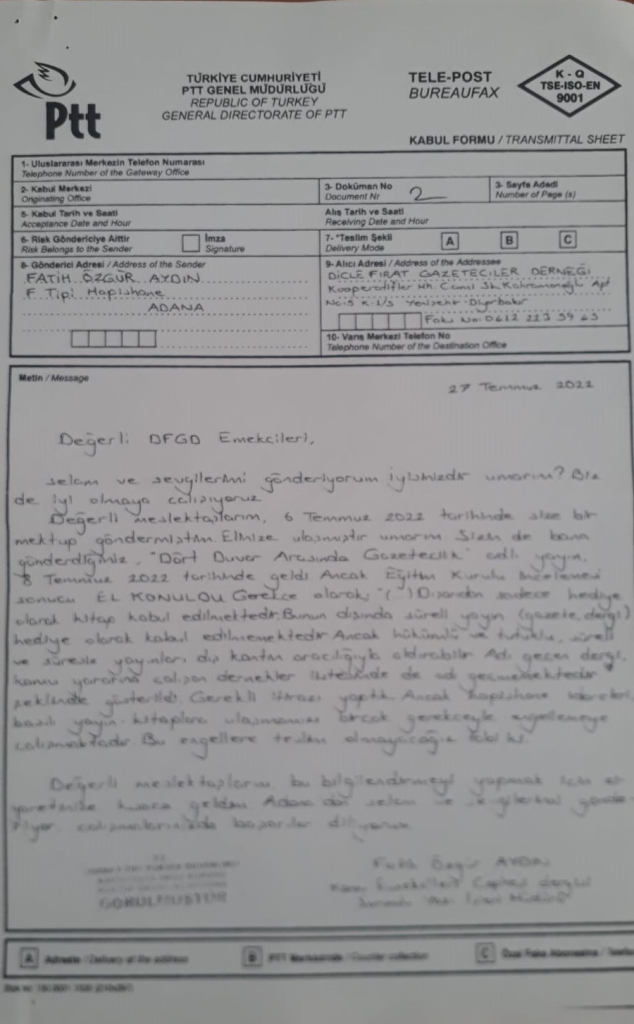 Ptt
TÜRKİYE CUMHURİYETİ
PTT GENEL MÜDÜRLÜĞÜ
REPUBLIC OF TURKEY
GENERAL DIRECTORATE OF PTT
TELE-POST
BUREAUFAX
K - Q
TSE-ISO-EN
9001
KABUL FORMU / TRANSMITTAL SHEET
1- Uluslararası Merkezin Telefon Numarası
Telephone Number of the Gateway Office
2- Kabul Merkezi
Originating Office
3- Doküman No
Document Nr
2
3- Sayfa Adedi
Number of Page (s)
5- Kabul Tarih ve Saati
Acceptance Date and Hour
Alış Tarih ve Saati
Receiving Date and Hour
6- Risk Göndericiye Aittir
Risk Belongs to the Sender
İmza
Signature
7- "Teslim Şekli
Delivery Mode
A
B
C
8- Gönderici Adresi / Address of the Sender
FATİH ÖZGÜR AYDIN
F Tipi Hapishane
ADANA
9- Alıcı Adresi / Address of the Addressee
DİCLE FIRAT GAZETECİLER DERNEĞİ
Kooperatifler Mh. Camil Sk. Kahramanoğlu Apt
Yenişehir-Diyarbakır
Faks No: 0412 223 59 63
10- Varış Merkezi Telefon No
Telephone Number of the Destination Office
Metin / Message
27 Temmuz 2022
Değerli DFGD Emekçileri,
selam ve sevgilerimi gönderiyorum iyisinizdir umarım? Biz
de iyi olmaya çalışıyoruz
Değerli meslektaşlarım, 6 Temmuz 2022 tarihinde size bir
mektup göndermiştim Elinize ulaşmıştır umarım Sizin de bana
gönderdiğiniz, "Dört Duvar Arasında Gazetecilik" adlı yayın,
8 Temmuz 2022 tarihinde geldi Ancak Eğitim Kurulu incelemesi
sonucu EL KONULDU Gerekçe olarak; "( )Dışarıdan sadece hediye
olarak kitap kabul edilmektedir Bunun dışında süreli yayın (gazete, dergi)
hediye olarak kabul edilmemektedir Ancak hükümlü ve tutuklu, süreli
ve süresiz yayınları dış kantin aracılığıyla aldırabilir Adı geçen dergi,
kamu yararına çalışan dernekler listesinde de adı geçmemektedir"
şeklinde gösterildi Gerekli itirazı yaptık Ancak hapishane idareleri,
basılı yayın, kitaplara ulaşmamızı birçok gerekçeyle engellemeye
çalışmaktadır Bu engellere teslim olmayacağız tabi ki
Değerli meslektaşlarım, bu bilgilendirmeyi yapmak için
kısaca geldim Adana'dan selam ve sevgilerimi
çalışmalarınızda başarılar diliyorum
Fatih Özgür AYDIN
GÖRÜLMÜŞTÜR
A
Adreste / Delivery at the address
B
PTT Merkezinde / Counter collection
C